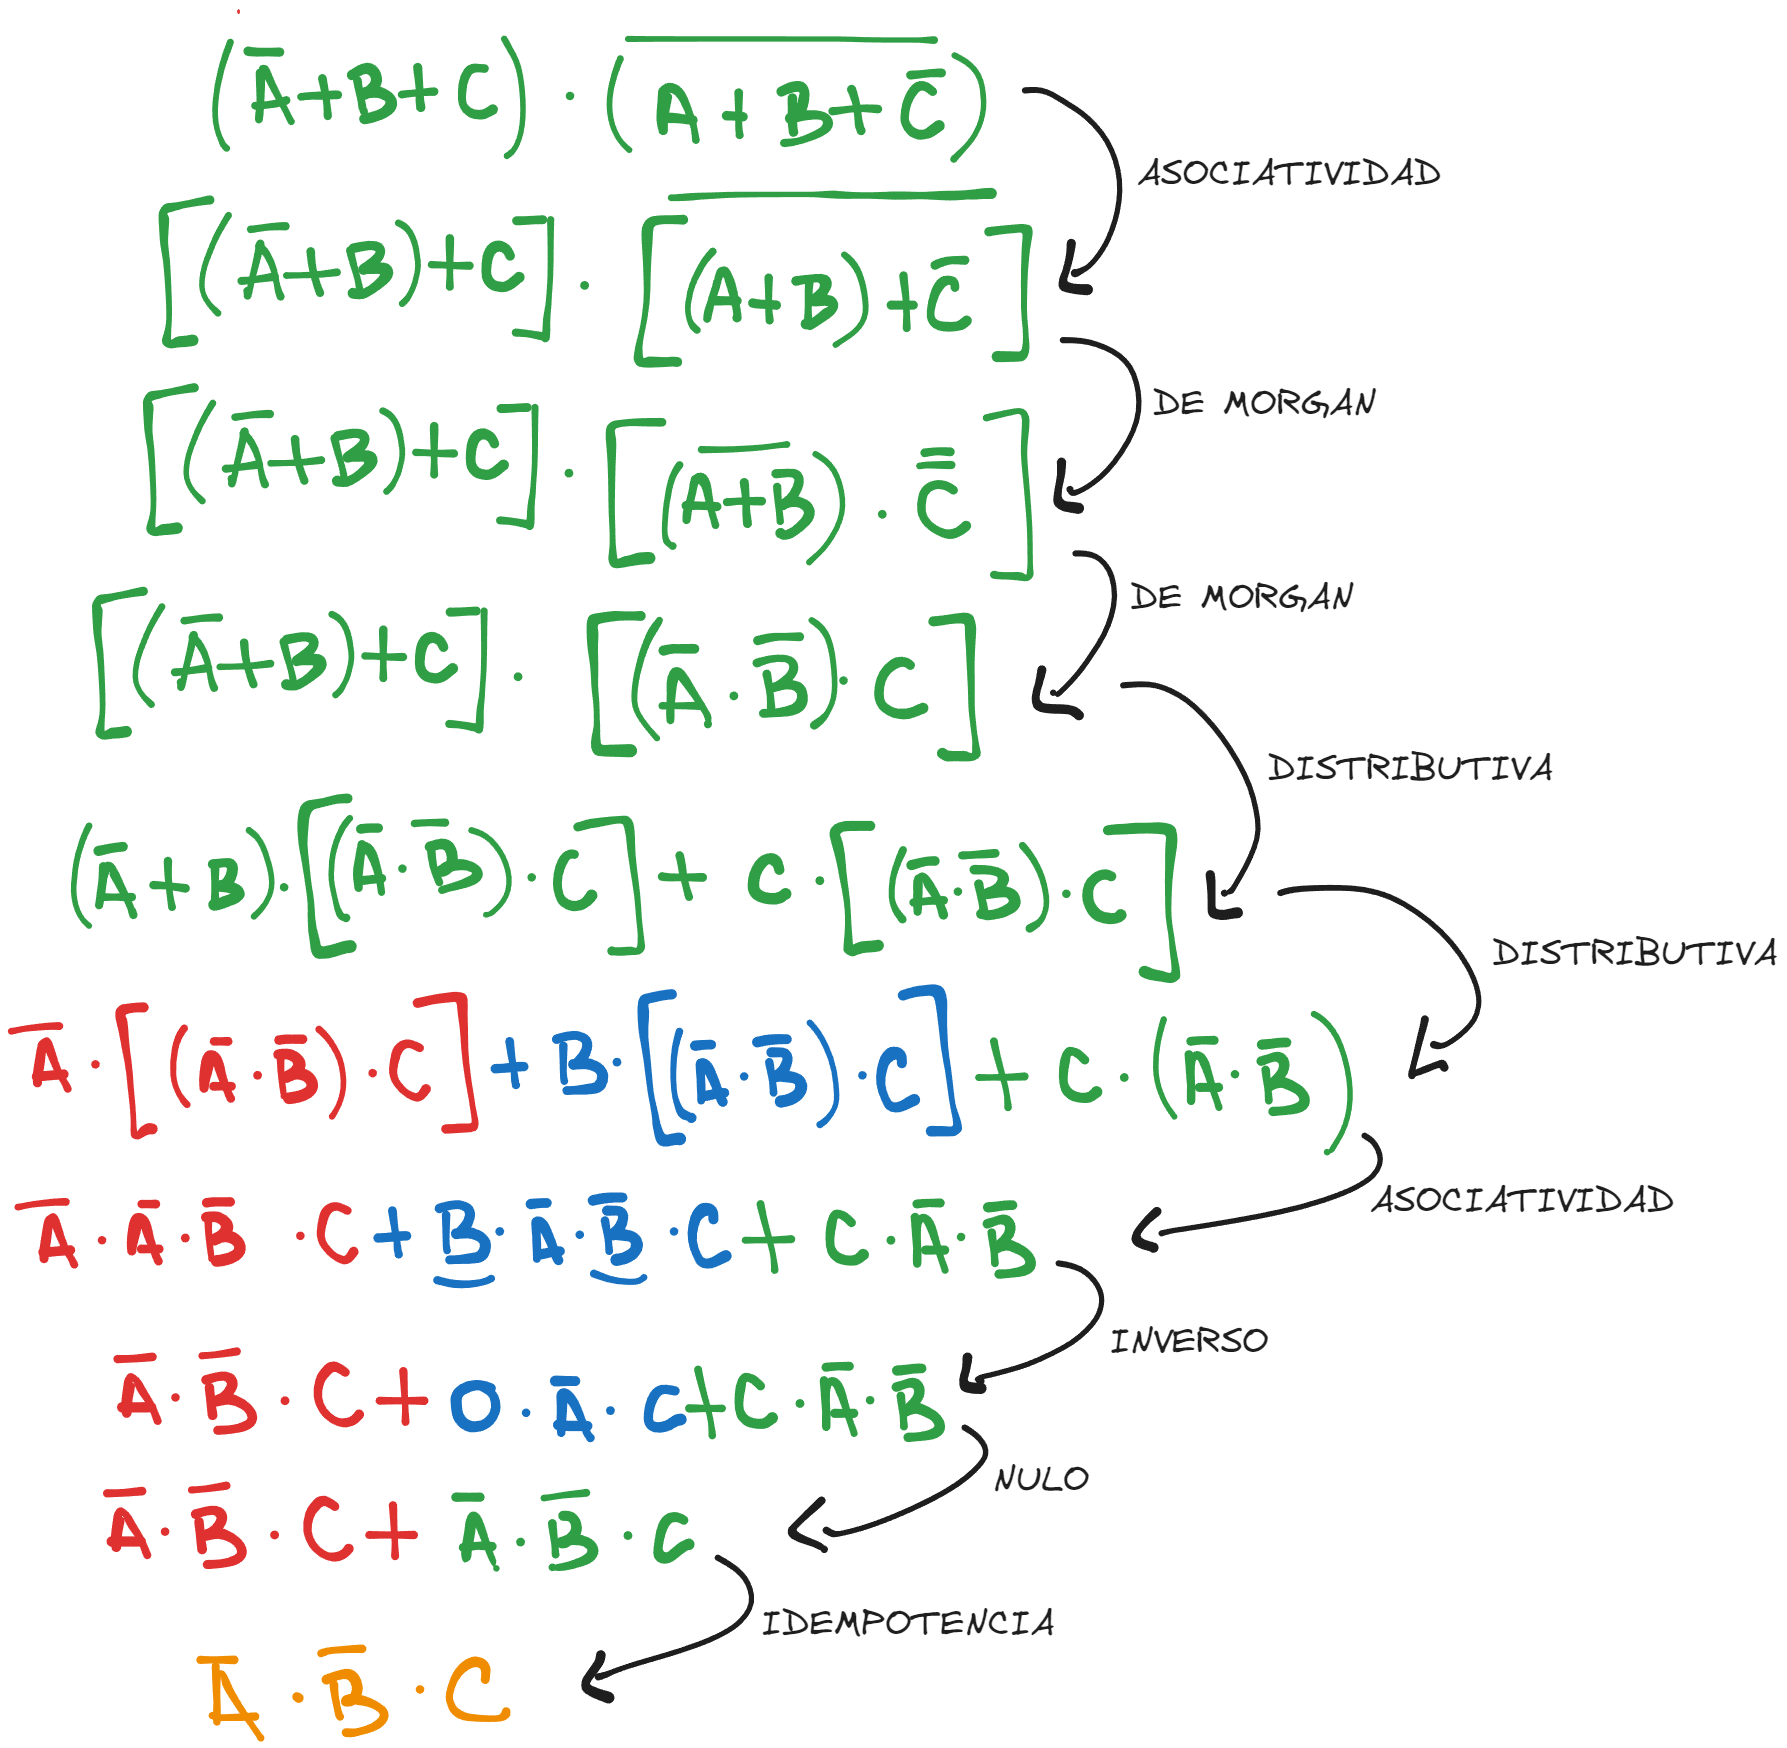 (A̅+B+C) · (̅A̅ ̅+̅ ̅B̅ ̅+̅ ̅C̿)̅
ASOCIATIVIDAD
[(A̅+B)+C] · [̅(̅A̅+̅B̅)̅+̅C̿]̅
DE MORGAN
[(A̅+B)+C] · [(A̅+̅B̅) · C̿]
DE MORGAN
[(A̅+B)+C] · [(A̅ · B̅) · C]
DISTRIBUTIVA
(A̅+B) · [(A̅ · B̅) · C] + C · [(A̅ · B̅) · C]
DISTRIBUTIVA
A̅ · [(A̅ · B̅) · C] + B · [(A̅ · B̅) · C] + C · (A̅ · B̅)
ASOCIATIVIDAD
A̅ · A̅ · B̅ · C + B · A̅ · B̅ · C + C · A̅ · B̅
INVERSO
A̅ · B̅ · C + 0 · A̅ · C + C · A̅ · B̅
NULO
A̅ · B̅ · C + A̅ · B̅ · C
IDEMPOTENCIA
A̅ · B̅ · C